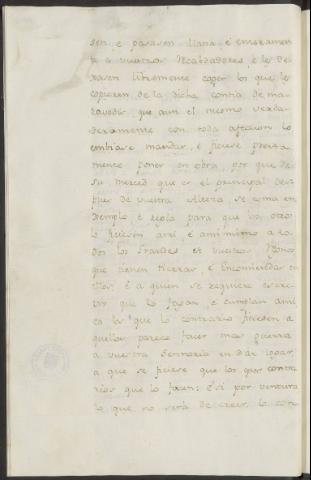 sen e pagasen llana e enteramen
te a vuestros Recabdadores, e les de
xasen libremente coger los que les
copiesen de la dicha contia de ma
ravedis, que aun el mesmo verda
deramente con toda afeccion lo
embiase mandar, e ficiese presta
mente poner en obra, por que de
su merced que es el principal des
pues de vuestra Alteza, se toma en
xemplo, e regla para que los otros
lo ficiesen ansi, e ansimismo a to
dos los Grandes de vuestros Regnos
que tienen tierras, e Encomiendas en
ellos, e a quien se requiere escre
vir que lo fagan, e cumplan ansi
ca los que lo contrario ficiesen a
quellos parece facer mas guerra
a vuestra Sennoria en dar logar
a que se ficiese que los que contra
rios que lo facen: E si por ventura
lo que no será de creer, lo con